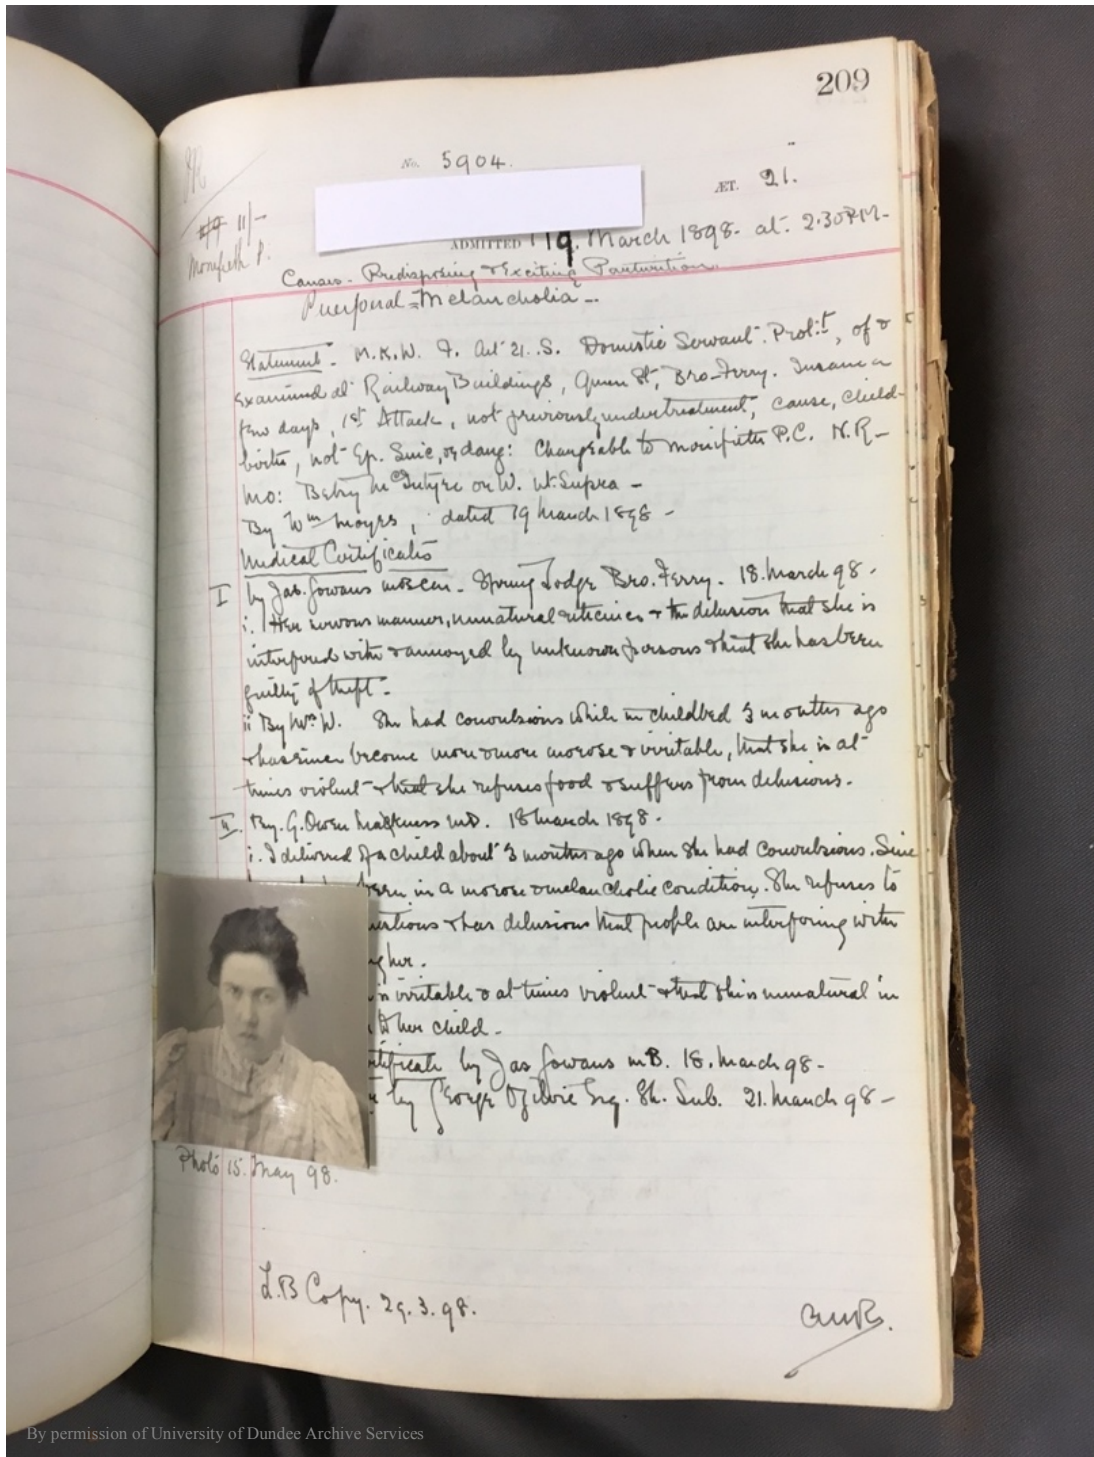 209
No. 5904.
ÆT. 21.
11/-
Monifieth P.
ADMITTED 19. March 1898. at. 2.30 P.M.
Causes - Predisposing & Exciting Parturition.
Puerperal Melancholia -
Statement. M.K.W. F. Aet 21. S. Domestic Servant. Prot:t, of &
examined at Railway Buildings, Queen St, Bro-Ferry. Insane a
few days, 1st Attack, not previously under treatment, cause, child-
birth, not Ep. Suic, or dang: Chargeable to Monifieth P.C. N.R-
Mo: Betsy McIntyre or W. Ut. Supra -
By Wm Moyes, dated 19 March 1898 -
Medical Certificates
I by Jas. Gowans Spring Lodge Bro. Ferry. 18. March 98.
i. Her nervous manner, unnatural reticence & the delusion that she is
interfered with & annoyed by unknown persons & that she has been
guilty of theft.
ii By Mrs W. She had convulsions while in childbed 3 months ago
& has since become more & more morose & irritable, that she is at
times violent & that she refuses food & suffers from delusions.
II. By. G. Owen Mackness M.D. 18 March 1898.
i. I delivered of a child about 3 months ago when she had convulsions. Since
been in a morose & melancholic condition. She refuses to
& has delusions that people are interfering with
her.
is irritable & at times violent & that she is unnatural in
to her child.
by Jas Gowans M.B. 18. March 98-
by George Ogilvie Esq. Sh. Sub. 21. March 98-
Photo 15. May 98.
L.B Copy. 29.3.98.
By permission of University of Dundee Archive Services